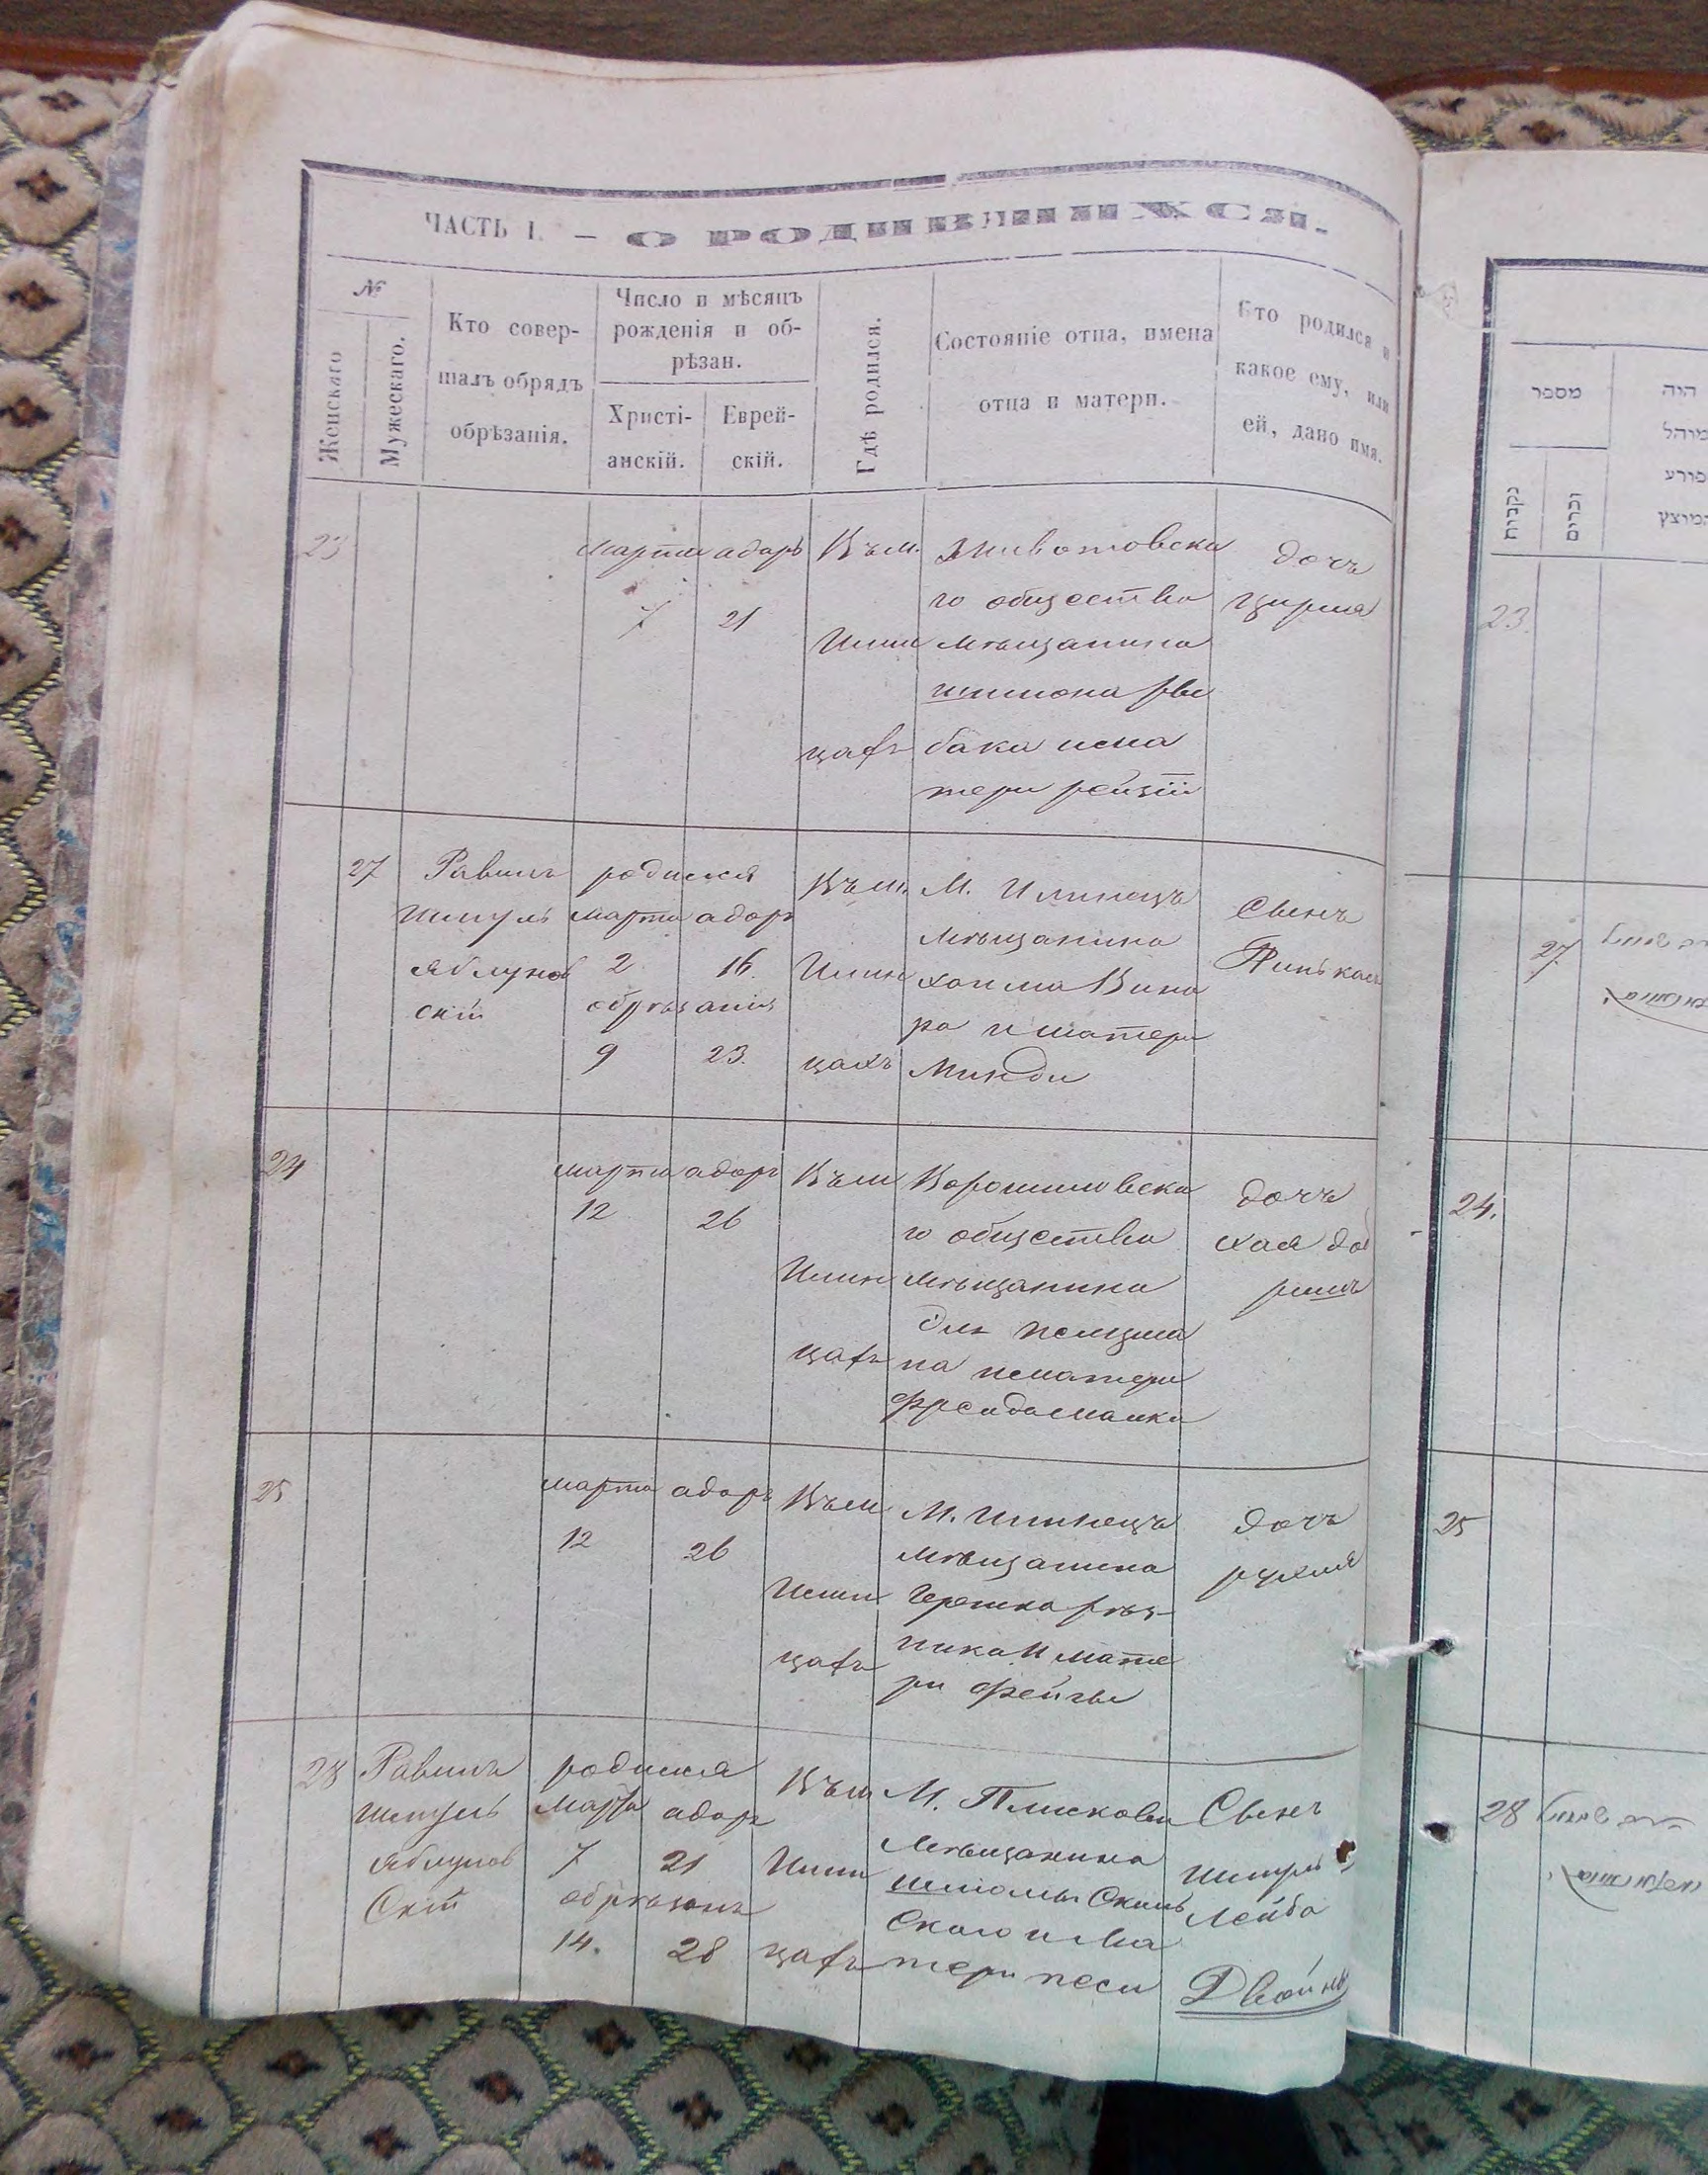 ЧАСТЬ I. — О РОДИВШИХСЯ.
№
Женскаго
Мужескаго.
Кто совер-
шалъ обрядъ
обрѣзанія.
Число и мѣсяцъ
рожденія и об-
рѣзан.
Христі-
анскій.
Еврей-
скій.
Гдѣ родился.
Состояніе отца, имена
отца и матери.
Кто родился и
какое ему, или
ей, дано имя.
23
марта адаръ
7 21
Въ м.
Илин
цахъ
Животовска
го общества
мѣщанина
шимона
бака има
тери рейзіи
дочь
цирля
27
Равинъ
Шмуль
Яблунов
скій
родился
марта адаръ
2 16.
обрѣзанія
9 23.
Въ м.
Илин
цахъ
М. Илинецъ
мѣщанина
хаима Вина
ра и матери
Минди
Свинъ
Пинькасъ
24
марта адаръ
12 26
Въ м
Илин
цахъ
Ворошиловска
го общества
мѣщанина
на иматери
фрейдамалки
дочь
хая
25
марта адаръ
12 26
Въ м
Илин
цахъ
М. Илинецъ
мѣщанина
Гершка рѣз-
ника И мате
ри фейги
дочь
рухля
28
Равинъ
Шмуль
Яблунов
Скій
родился
марта адаръ
7 21
обрѣзанъ
14. 28
Въ м
Илин
цахъ
М. Плискова
мѣщанина
шлиомы
Скаго има
тери песи
Свинъ
Шмуль
Лейба
Двойны
מספר
נקבות
זכרים
היה
מוהל
פורע
המוצץ
23.
27.
24.
25
28